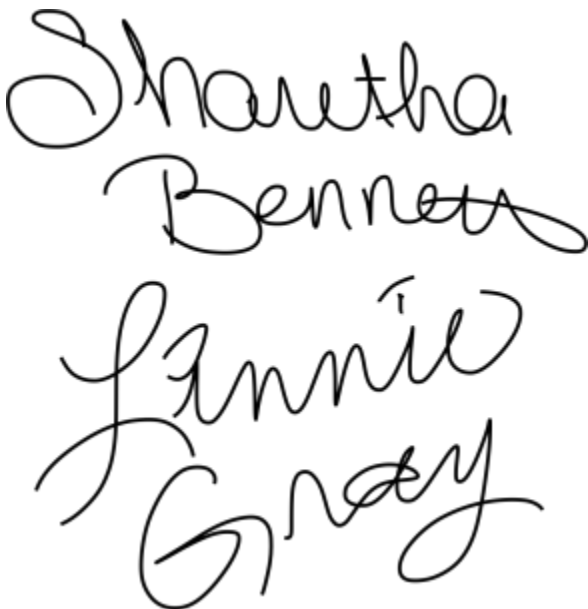 Shawtha
Benney
Lannie
Gray